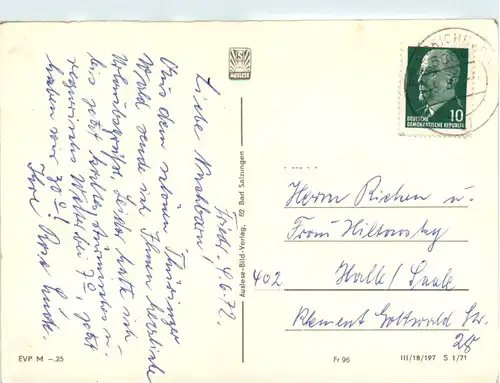 Friedr. 4.6.72.
Liebe Nachbarn!
Aus dem schönen Thüringer
Wald sende ich Ihnen herzliche
Urlaubsgrüße. Leider hatte ich
bis jetzt kaltes, stürmisches u.
regnerisches Wetter bei 7°, jetzt
haben wir 30°!
Ihre Rose Linde.
AUSLESE
Auslese-Bild-Verlag, 62 Bad Salzungen
10
DEUTSCHE
DEMOKRATISCHE REPUBLIK
Herrn Richen u.
Frau Hiltowsky
402 Halle/Saale
Klement Gottwald Str.
28
EVP M –.25
Fr 96
III/18/197 S 1/71